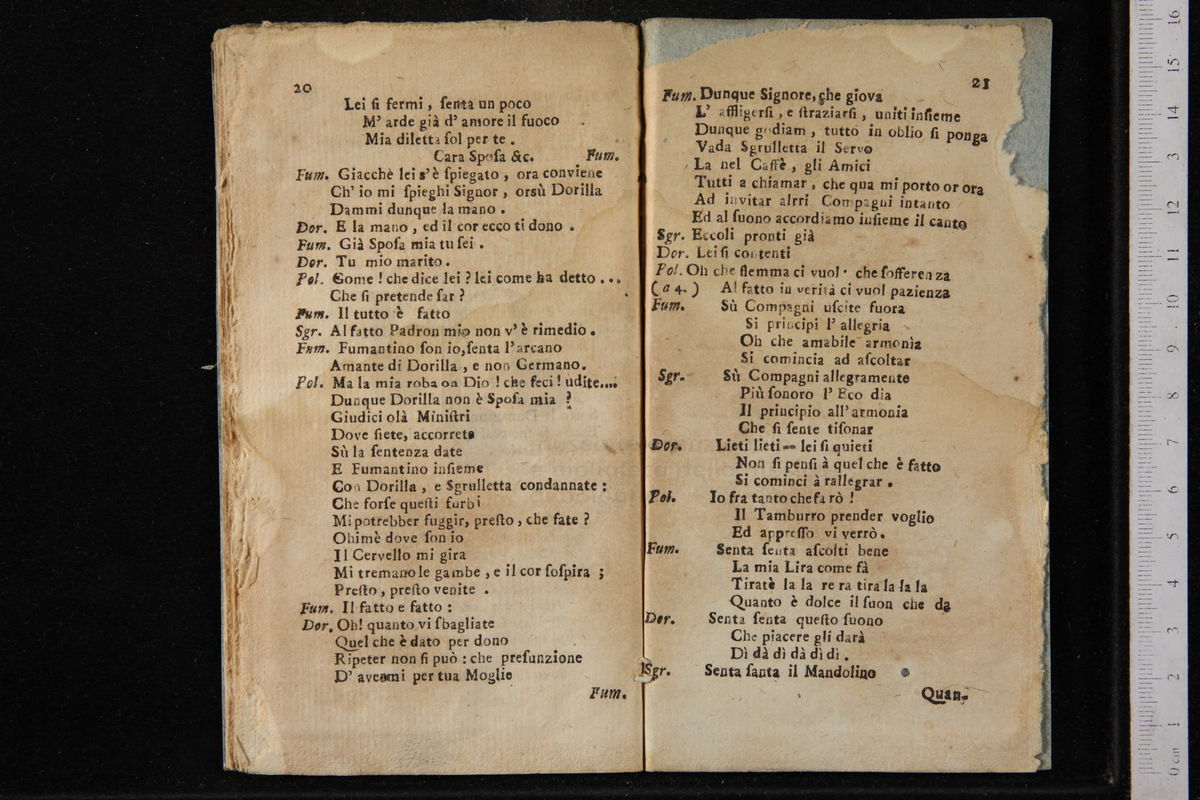 20
Lei ſi fermi, ſenta un poco
M' arde già d' amore il fuoco
Mia diletta ſol per te.
Cara Spoſa &c. Fum.
Fum. Giacchè lei s'è ſpiegato, ora conviene
Ch' io mi ſpieghi Signor, orsù Dorilla
Dammi dunque la mano.
Dor. E la mano, ed il cor ecco ti dono.
Fum. Già Spoſa mia tu ſei.
Dor. Tu mio marito.
Pol. Come! che dice lei? lei come ha detto...
Che ſi pretende far?
Fum. Il tutto è fatto
Sgr. Al fatto Padron mio non v'è rimedio.
Fum. Fumantino ſon io, ſenta l'arcano
Amante di Dorilla, e non Germano.
Pol. Ma la mia roba oh Dio! che feci! udite....
Dunque Dorilla non è Spoſa mia?
Giudici olà Miniſtri
Dove ſiete, accorrete
Sù la ſentenza date
E Fumantino inſieme
Con Dorilla, e Sgrulletta condannate:
Che forſe queſti furbi
Mi potrebber fuggir, preſto, che fate?
Ohimè dove ſon io
Il Cervello mi gira
Mi tremano le gambe, e il cor ſoſpira;
Preſto, preſto venite.
Fum. Il fatto e fatto:
Dor. Oh! quanto vi ſbagliate
Quel che è dato per dono
Ripeter non ſi può: che preſunzione
D' avermi per tua Moglie
Fum.
21
Fum. Dunque Signore, che giova
L' affligerſi, e ſtraziarſi, uniti inſieme
Dunque godiam, tutto in oblio ſi ponga
Vada Sgrulletta il Servo
La nel Caffè, gli Amici
Tutti a chiamar, che qua mi porto or ora
Ad invitar alrri Compagni intanto
Ed al ſuono accordiamo inſieme il canto
Sgr. Eccoli pronti già
Dor. Lei ſi contenti
Pol. Oh che flemma ci vuol che ſofferenza
(a 4.) Al fatto in verità ci vuol pazienza
Fum. Sù Compagni uſcite fuora
Si principi l' allegria
Oh che amabile armonìa
Si comincia ad aſcoltar
Sgr. Sù Compagni allegramente
Più ſonoro l' Eco dia
Il principio all' armonia
Che ſi ſente tiſonar
Dor. Lieti lieti -- lei ſi quieti
Non ſi penſi à quel che è fatto
Si cominci à rallegrar.
Pol. Io fra tanto che fa rò!
Il Tamburro prender voglio
Ed appreſſo vi verrò.
Fum. Senta ſenta aſcolti bene
La mia Lira come fà
Tiratè la la re ra tira la la la
Quanto è dolce il ſuon che da
Dor. Senta ſenta queſto ſuono
Che piacere gli darà
Dì dà dì dà dì dì.
Sgr. Senta ſanta il Mandolino
Quan-
0 cm 1 2 3 4 5 6 7 8 9 10 11 12 13 14 15 16